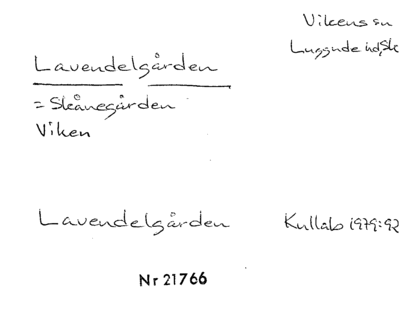 Vikens sn
Luggude hd, Sk
Lavendelgården
= Skånegården
Viken
Lavendelgården Kullab 1979:92
Nr 21766